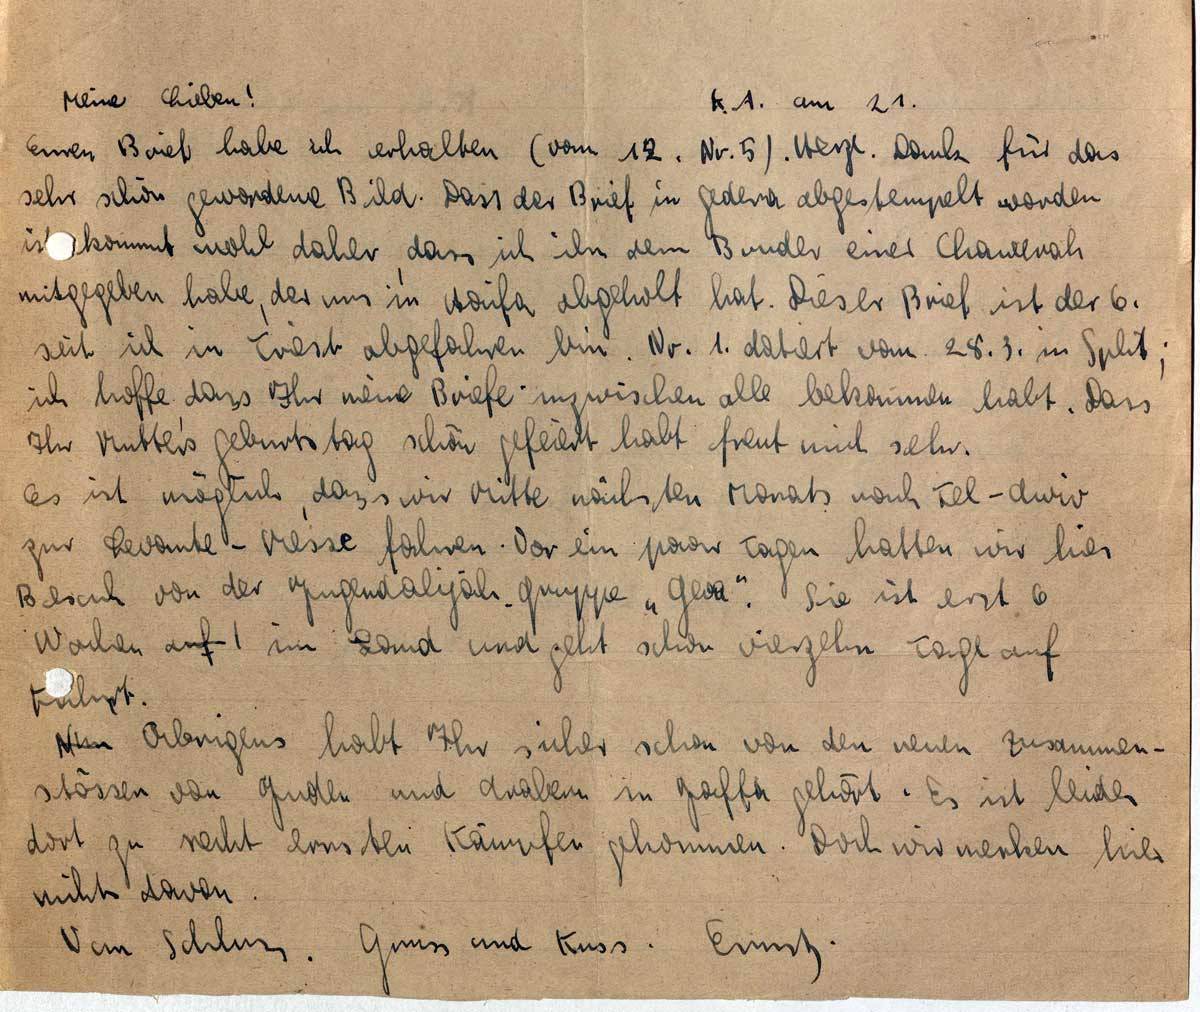 Meine Lieben! K.A. am 21.
Euren Brief habe ich erhalten (vom 12. Nr. 5). Herzl. Dank für das
sehr schön gewordene Bild. Dass der Brief in Gedera abgestempelt worden
ist kommt wohl daher, dass ich ihn dem Bruder einer Chawerah
mitgegeben habe, der uns in Haifa abgeholt hat. Dieser Brief ist der 6.
seit ich in Triest abgefahren bin. Nr. 1. datiert vom 28.3. in Split;
ich hoffe dass Ihr meine Briefe inzwischen alle bekommen habt. Dass
Ihr Mutter's geburtstag schön gefeiert habt freut mich sehr.
Es ist möglich, dass wir Mitte nächsten Monats nach Tel-Awiv
zur Levante-Messe fahren. Vor ein paar Tagen hatten wir hier
Besuch von der Jugendalijah-gruppe „Gewa". Sie ist erst 6
Wochen auf im Land und geht schon vierzehn Tage auf
Fahrt.
Nun Übrigens habt Ihr sicher schon von den neuen Zusammen-
stössen von Juden und Arabern in Jaffa gehört. Es ist leider
dort zu recht ernsten Kämpfen gekommen. Doch wir merken hier
nichts davon.
Nun Schluss. Gruss und Kuss. Ernst.